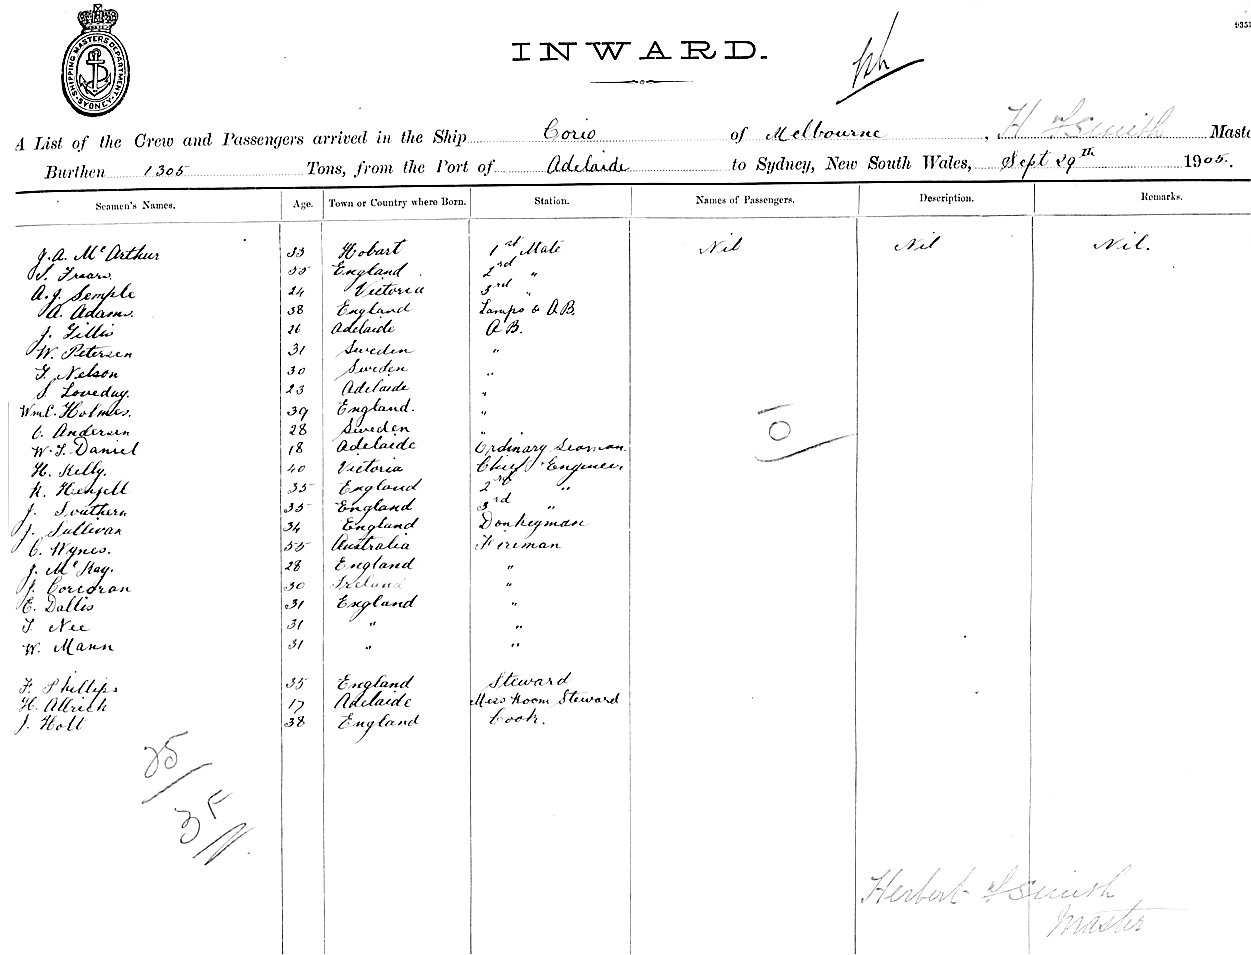 SHIPPING MASTERS DEPARTMENT
SYDNEY
INWARD.
A List of the Crew and Passengers arrived in the Ship Corio of Melbourne, H F Smith Maste
Burthen 1305 Tons, from the Port of Adelaide to Sydney, New South Wales, Sept 29th 1905.
Seamen's Names. Age. Town or Country where Born. Station. Names of Passengers. Description. Remarks.
J. A. McArthur 33 Hobart 1st Mate Nil Nil Nil.
S. England 2nd "
A. J. Semple 24 Victoria 3rd "
A. Adams. 38 England Lamps & A B.
J. Gillis 26 Adelaide A B.
W. Petersen 31 Sweden "
F. Nelson 30 Sweden "
S Loveday. 23 Adelaide "
Wm C. Holmes. 39 England. "
C. Andersen 28 Sweden "
W. S. Daniel 18 Adelaide Ordinary Seaman.
H. Kelly. 40 Victoria Chief Engineer.
35 England 2nd "
J. Southern 35 England 3rd "
J. Sullivan 34 England Donkeyman
C. Wynes. 55 Australia Fireman
J. McKay. 28 England "
J. Corcoran 30 Ireland "
E. Dallis 31 England "
T. Nee 31 " "
W. Mann 31 " "
F. Phillips 35 England Steward
H. Allrich 17 Adelaide Mess Room Steward
J. Holt 38 England Cook.
10
25
35
Herbert F Smith
Master